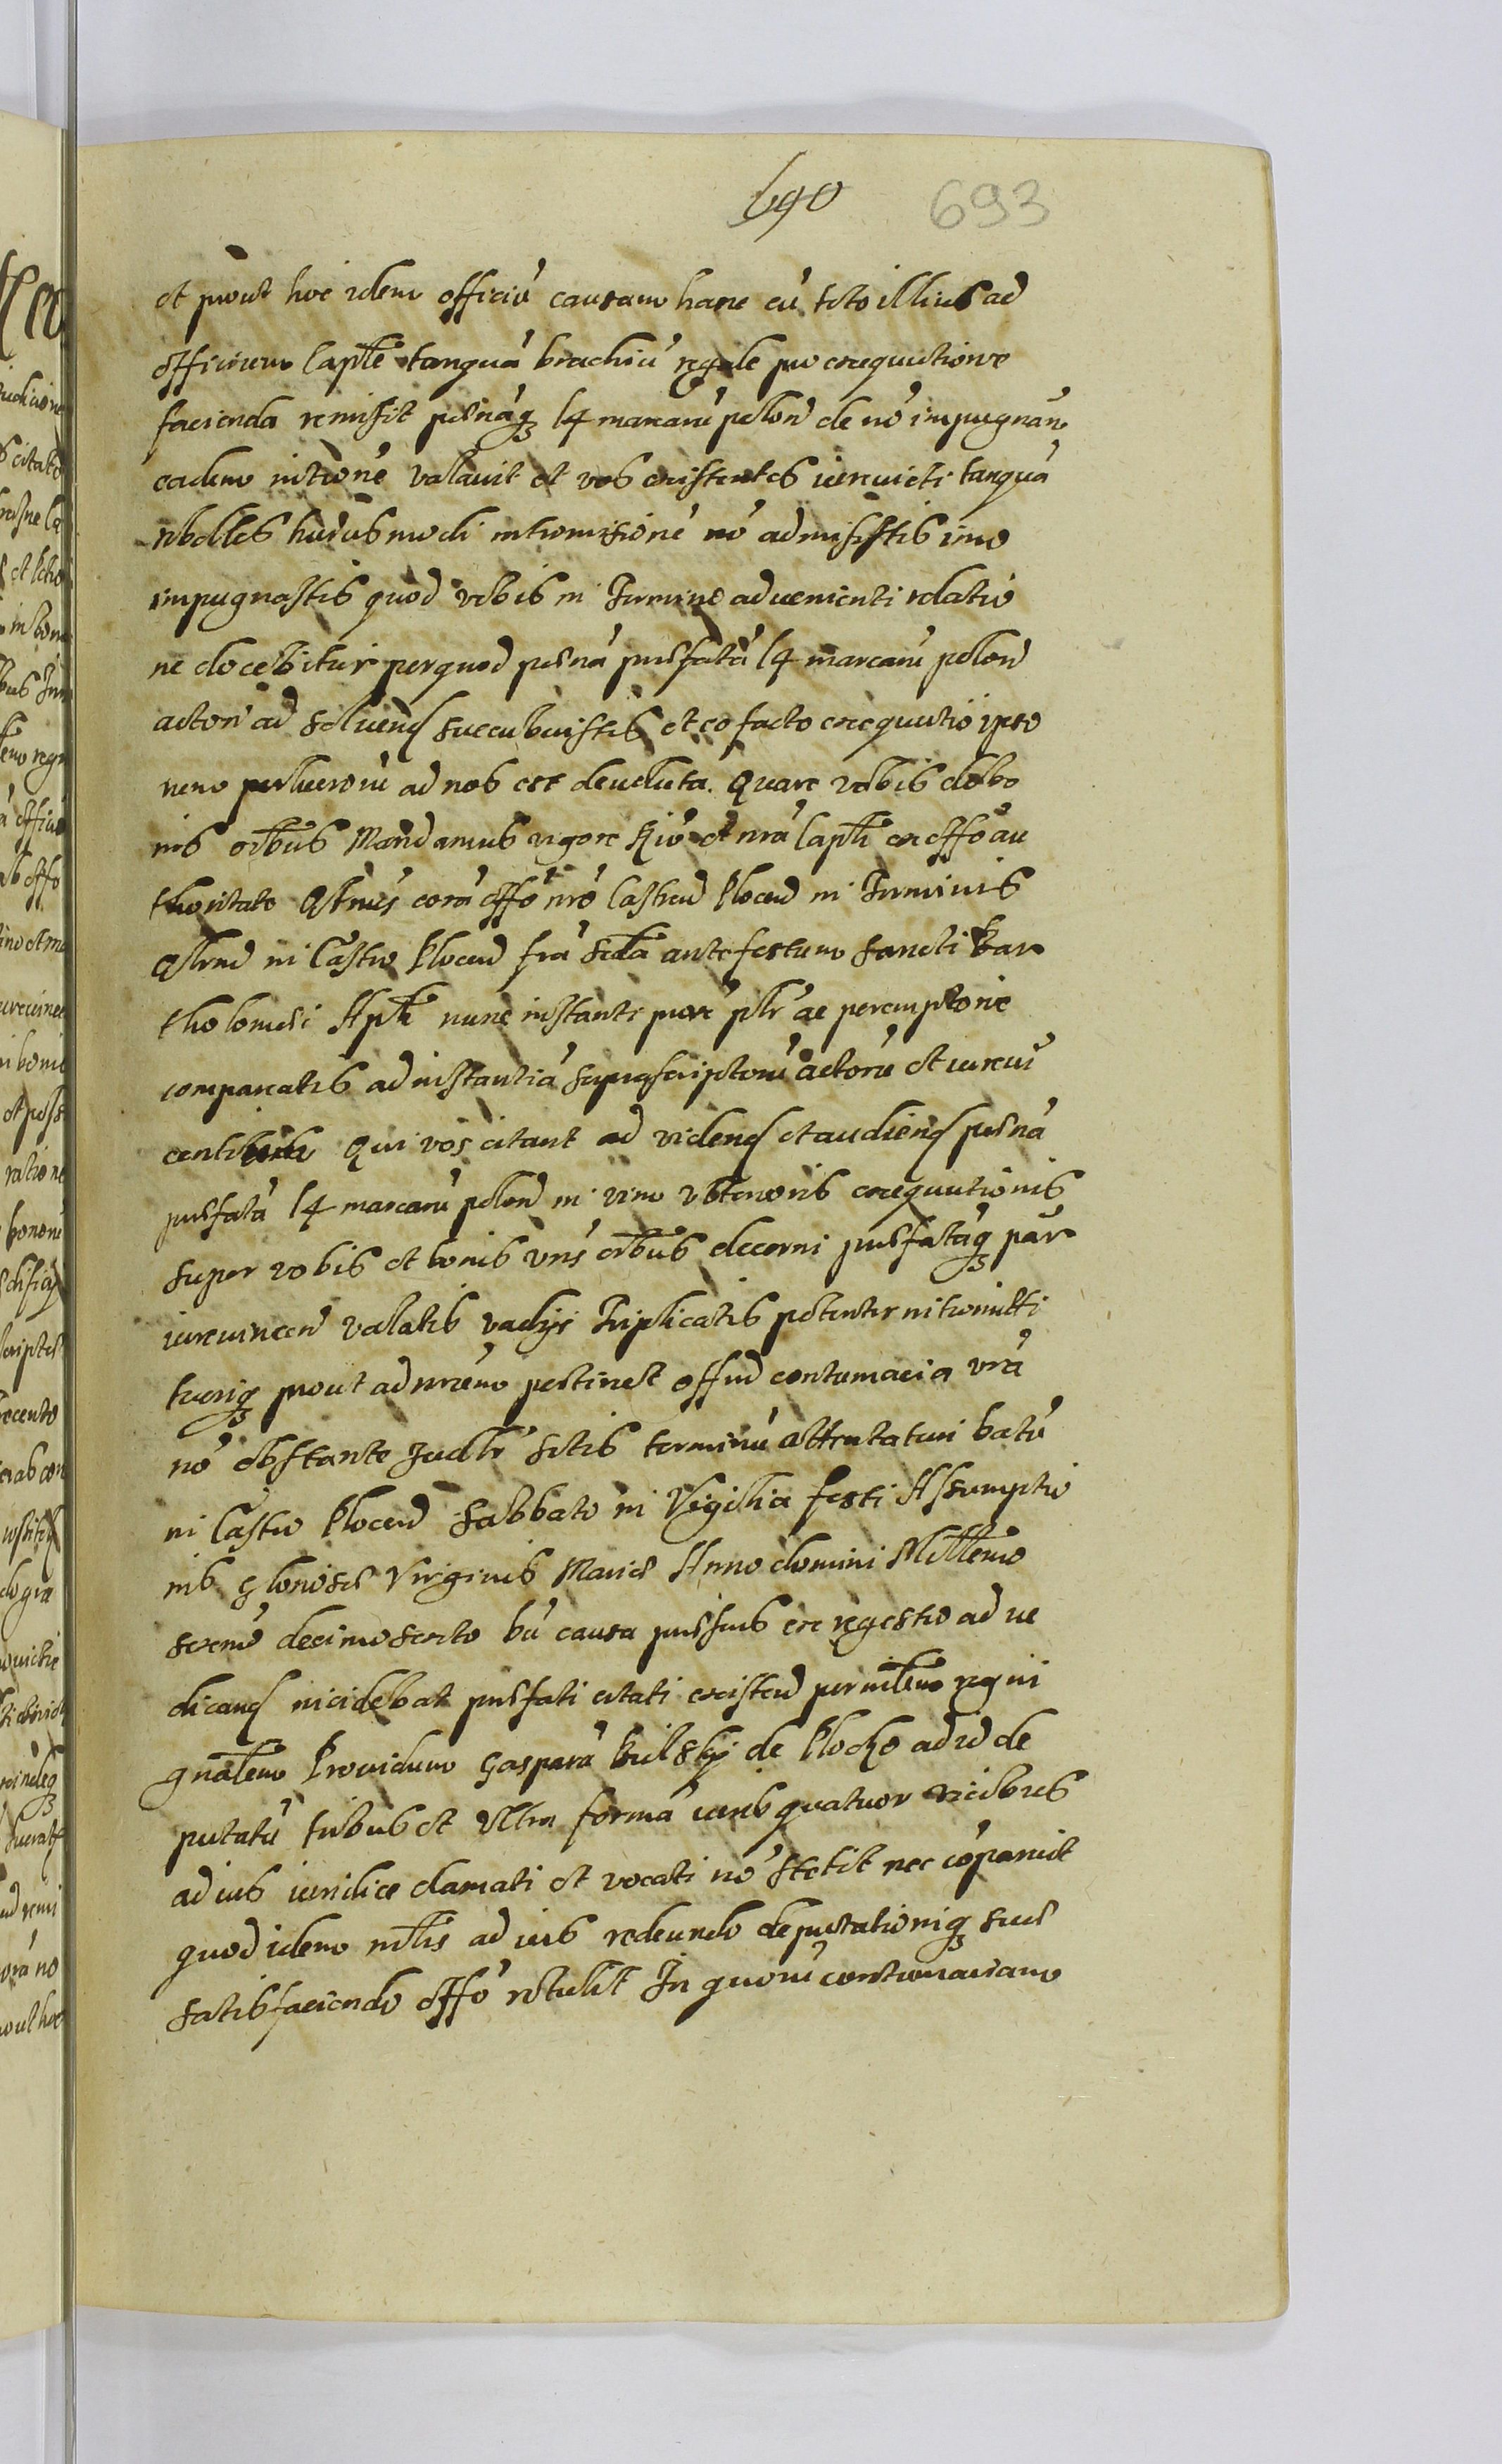 690 693
et prout hoc idem officiū causam hanc cū toto illius ad
officium Capitle tanquā brachiū regale pro exequutione
facienda remisit penāq3 14 marcarū polon de nō impugnan
eadem intrōne valavit et vos existentes iurevicti tanquā
rebelles huiusmodi intromissionē nō admisistis imo
impugnastis quod vobis in Termino advenienti relatio
ne docebitur perquod penā praefatā 14 marcarū polon
actori ad solvend succubuistis et eo facto exequutio ipso
ad nos est devoluta. Quare vobis de bo
nis oībus Mandamus vigore Riō et nrā Capli ex offō au
thoritate Qtnus corā offō nrō Castren Plocen in Terminis
Qlrnd in Castro Plocen fra Scda ante festum Sancti Bar
tholomaei Apli nunc instanti prox plr ac peremptorie
compareatis ad instantiā suprascriptorū actorū et iurevi
Qui vos citant ad videnđ et audienđ penā
praefatā 14 marcarū polon in vim ulterioris exequutionis
super vobis et bonis vris oībus decerni praefatāq3 par
iurevincen valatis vadys Triplicatis potenter intromitti
tueriq3 prout ad nrām pertinet offm contumacia vrā
nō obstante Judlr sitis terminū attentaturi Datū
in Castro Plocen Sabbato in Vigilia festi Assumptio
nis Gloriosae Virginis Mariae Anno domini Millemo
sexmō decimosexto Dū causa praesens ex regestro adve
dicand incidebat praefati citati existen per mīlem regni
gnālem Providum Gasparū Bielsky de Plocko ad id de
putatū tribus et ultra formā iuris quatuor vicibus
ad ius iuridice clamati et vocati nō stetit nec cōparuit
quod idem mīlis ad ius redeundo deputationiq3 suae
satisfaciendo offō retulit In quorū contumaciam